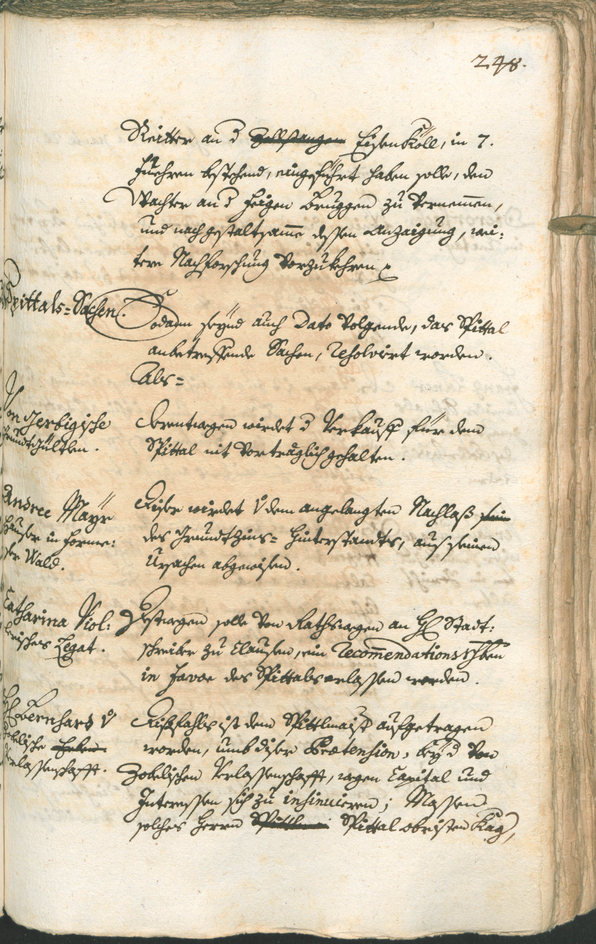 248.
Reitter an d Eisen Köll, in 7.
Fuehren bestehend, eingeführt haben solle, den
Wachter an d Feigen Bruggen zu Vernemmen,
und nach gestaltsamme dessen Anzaigung, wei:
tere Nachforschung Vorzukehren
Spittals=Sachen.
Sodann seynd auch Dato Volgende, das Spittal
anbetreffende Sachen, Resolvirt worden.
Als=
Von Zerbigische
Grundtgülten.
derentwegen wirdet d Verkauff für dem
Spittal nit Vorträglich gehalten.
Andree Mayr
in Forme:
ser Wald.
Diser wirdet V dem angelangten Nachlaß
des Grundtzins= Hinterstandts, aus seinen
Ursachen abgewisen.
Catharina Viol:
Legat.
Destwegen solle Von Rathswegen an H Stadt:
schreiber zu Clausen, ein Recommendations schreiben
in favor des Spittals erlassen werden.
Bernhard V
Verlassenschafft.
Dißfahls ist dem Spittlmaister aufgetragen
worden, umb diser Praetension, bey d Von
Zobelischen Verlassenschafft, wegen Capital und
Interessen sich zu insinuieren; Massen
solches Herrn Spittal obristen Kag,